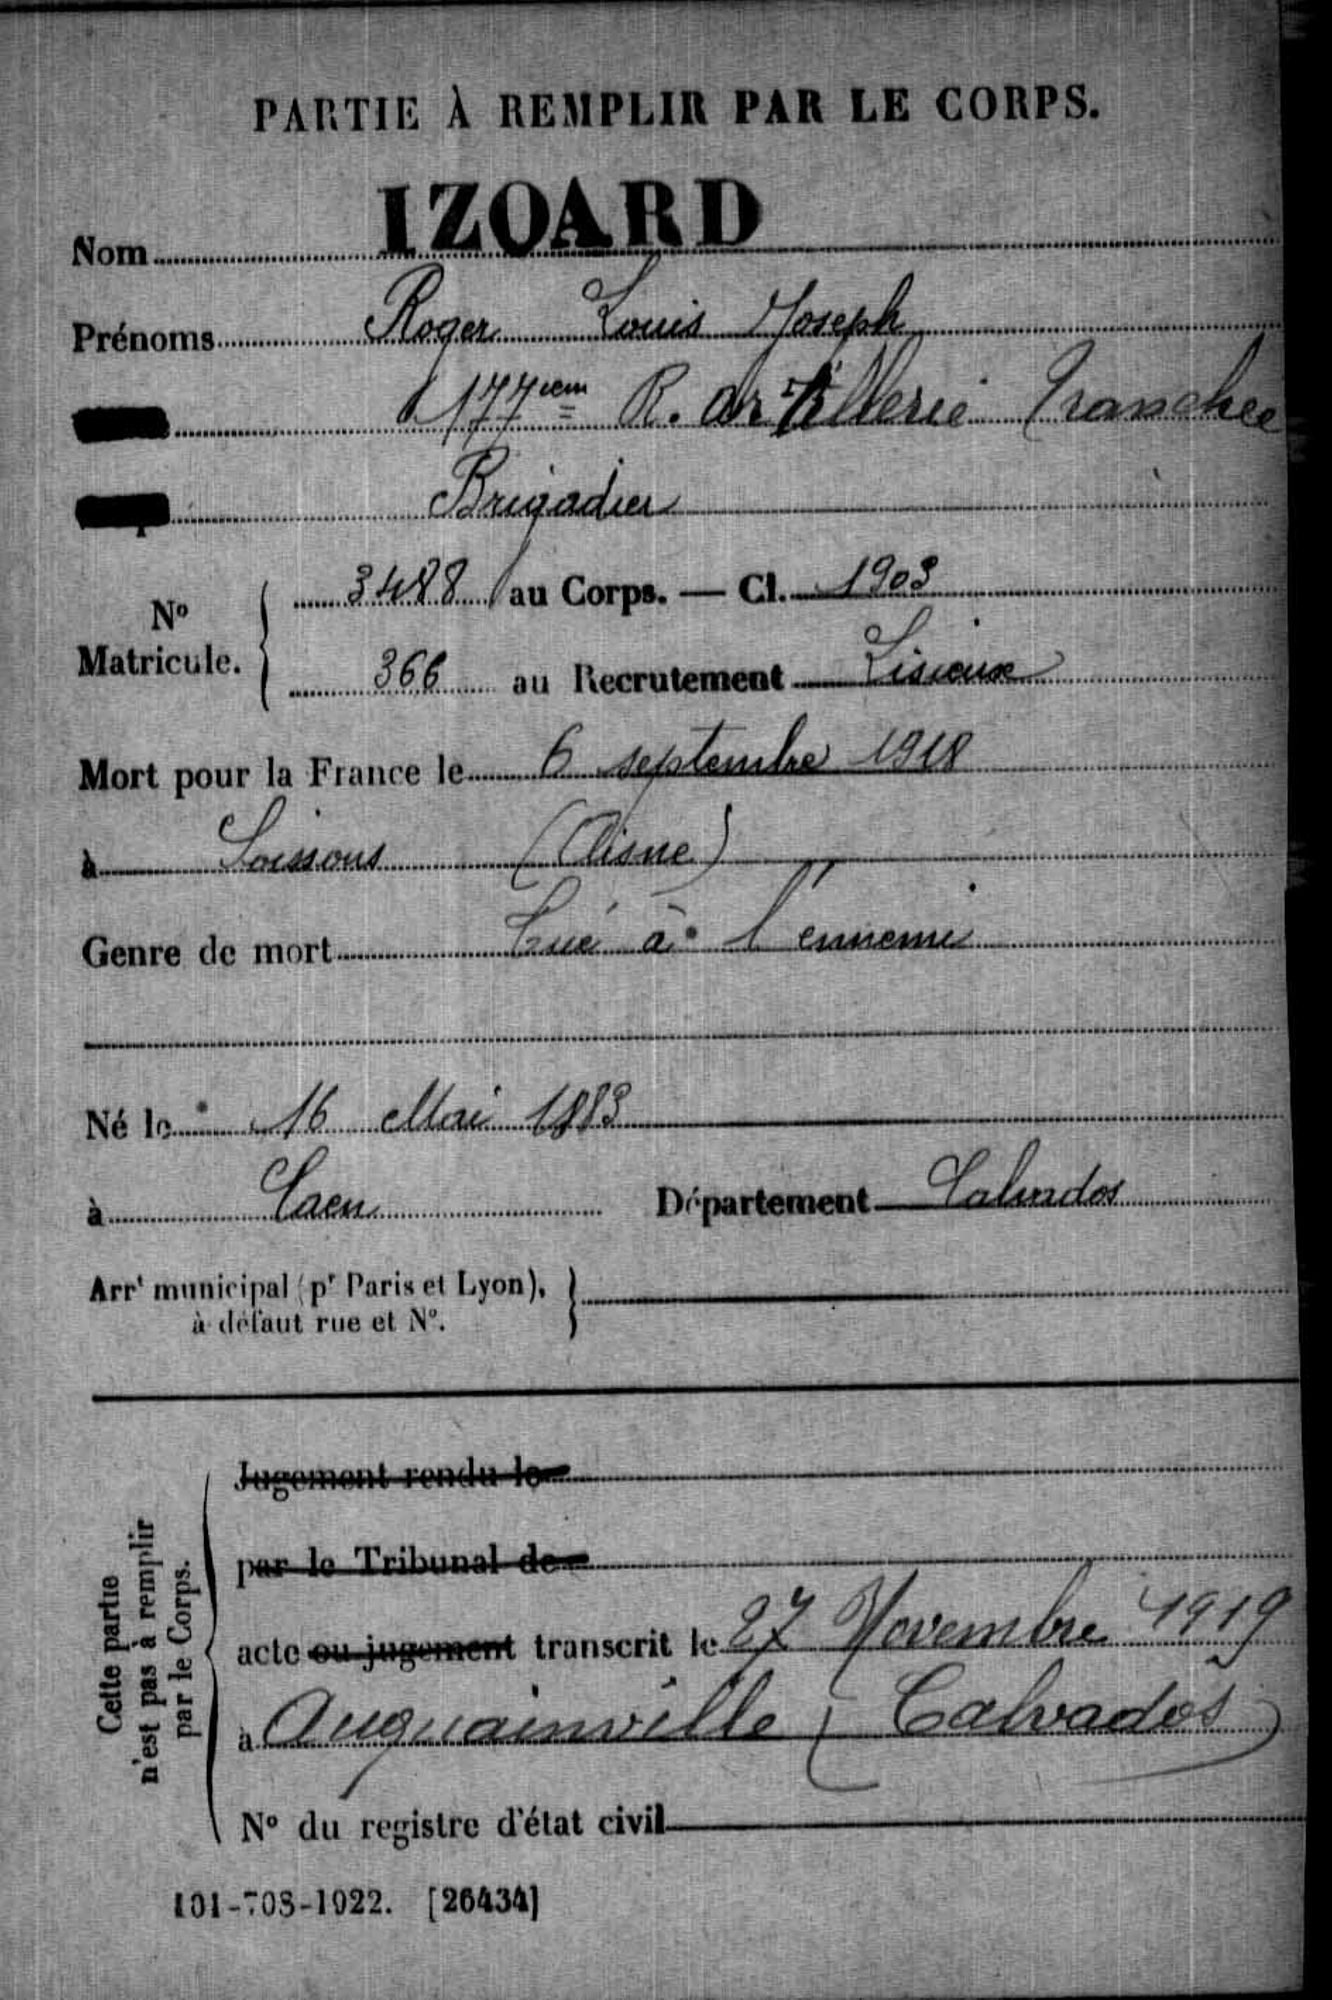 PARTIE À REMPLIR PAR LE CORPS.
Nom IZOARD
Prénoms Roger Louis Joseph
177iem R. artillerie Tranchee
Brigadier
No Matricule. { 3488 au Corps. — Cl. 1903
366 au Recrutement Lisieux
Mort pour la France le 6 septembre 1918
à Soissons (Aisne)
Genre de mort Tué à l'ennemi
Né le 16 Mai 1883
à Caen Département Calvados
Arrt municipal (pr Paris et Lyon), }
à défaut rue et No.
Cette partie
n'est pas à remplir
par le Corps.
Jugement rendu le
par le Tribunal de
acte ou jugement transcrit le 27 Novembre 1919
à Auquainville (Calvados)
No du registre d'état civil
101-708-1922. [26434]